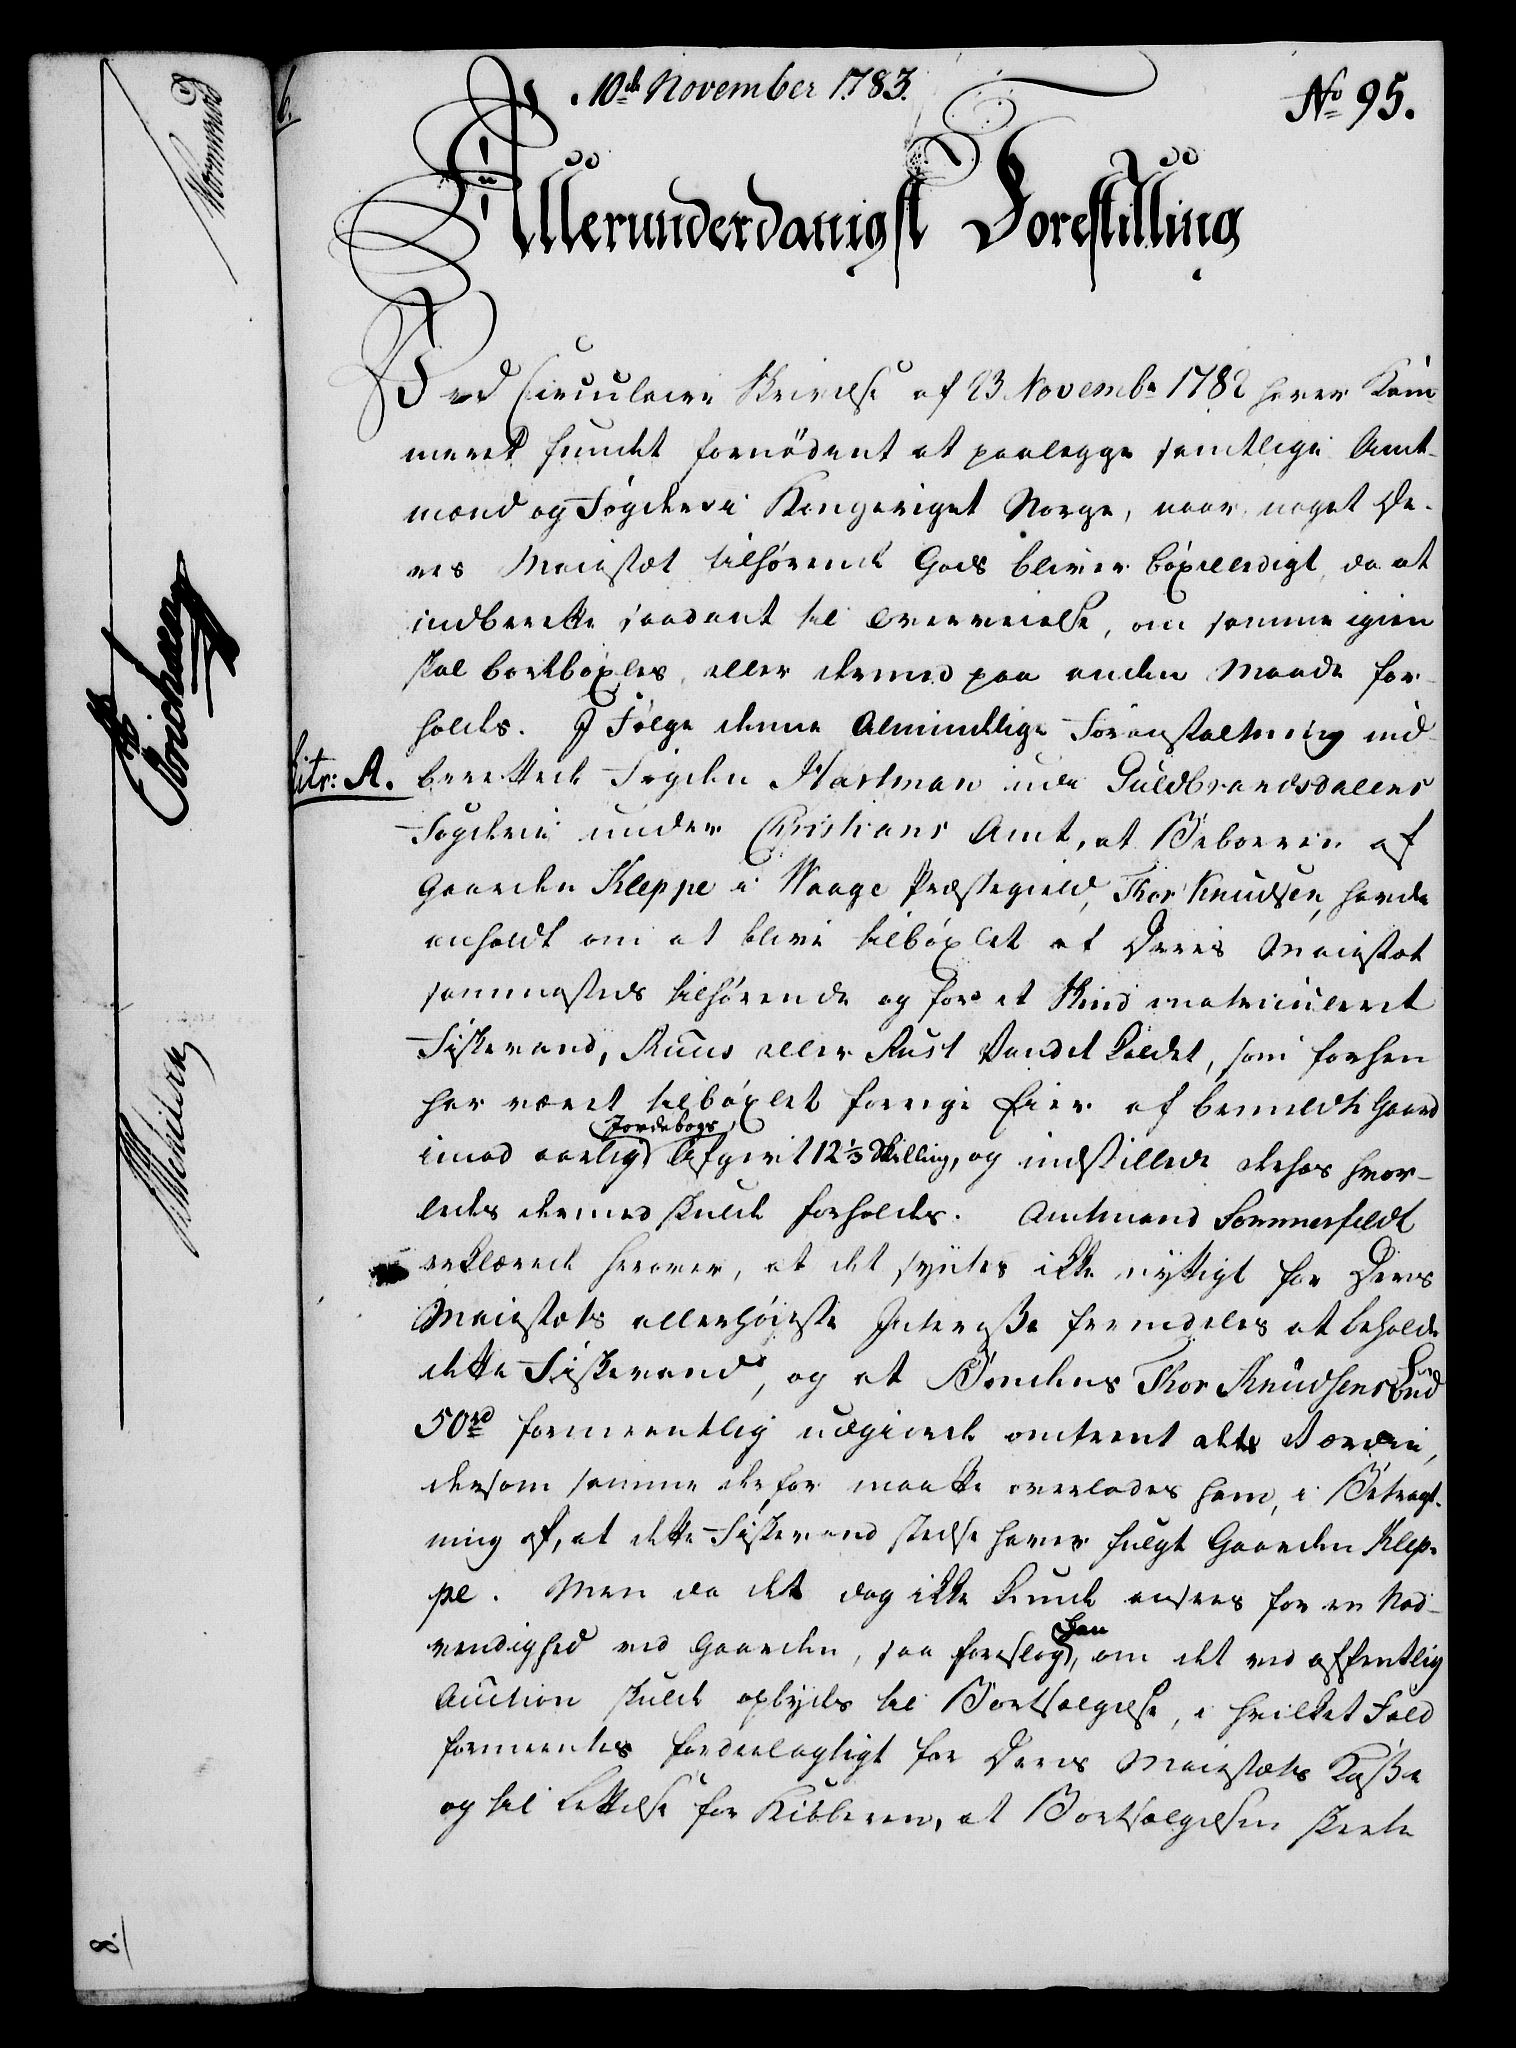 10de November 1783.
No 95.
Allerunderdanigst Forestilling
Ved Circulaire Skrivelse af 23 Novembr 1782 haver Kam¬
meret fundet fornödent at paalegge samtlige Amt¬
mænd og Fogder i Kongeriget Norge, naar noget De¬
res Maiestæt tilhörende Gods bliver böxelledigt, da at
indberette saadant til Overveielse, om samme igien
skal bortböxles, eller dermed paa anden Maade for¬
holdes. I Fölge denne Almindelige Foranstaltning ind¬
Litr: A. berettede Fogden Hartman udi Guldbrandsdalens
Fogderie under Christians Amt, at Beboeren af
Gaarden Kleppe i Waage Præstegield, Thor Knudsen, havde
anholdt om at blive tilböxlet et Deres Maiestæt
sammesteds tilhörende og for et Skind matriculeret
Fiskevand, Ruus eller Rust Vandet kaldet, som forhen
har været tilböxlet forrige Eier af bemeldte Gaard
imod aarlig Jordebogs Afgivt 12 1/3 Skilling, og indstillede dehos hvor¬
ledes dermed skulde forholdes. Amtmand Sommerfeldt
erklærede herover, at det syntes ikke nyttigt for Deres
Maiestæts allerhöieste Interesse fremdeles at beholde
dette Fiskevand, og at Bondens Thor Knudsens Bud
50rd formeentlig udgiorde omtrent dets Værdie,
dersom samme derfor maatte overlades ham, i Betragt¬
ning af, at dette Fiskevand stedse haver fulgt Gaarden Klep¬
pe. Men da det dog ikke kunde ansees for en Nød¬
vendighed ved Gaarden, saa foreslog han, om det ved offentlig
Auction skulde opbydes til Bortsælgelse, i hvilket Fald
formeentes fordeelagtigt for Deres Maiestæts Kasse
og til Lettelse for Kiöberen, at Bortsælgelsen skeede
Wormskiold
Erichsen
8.